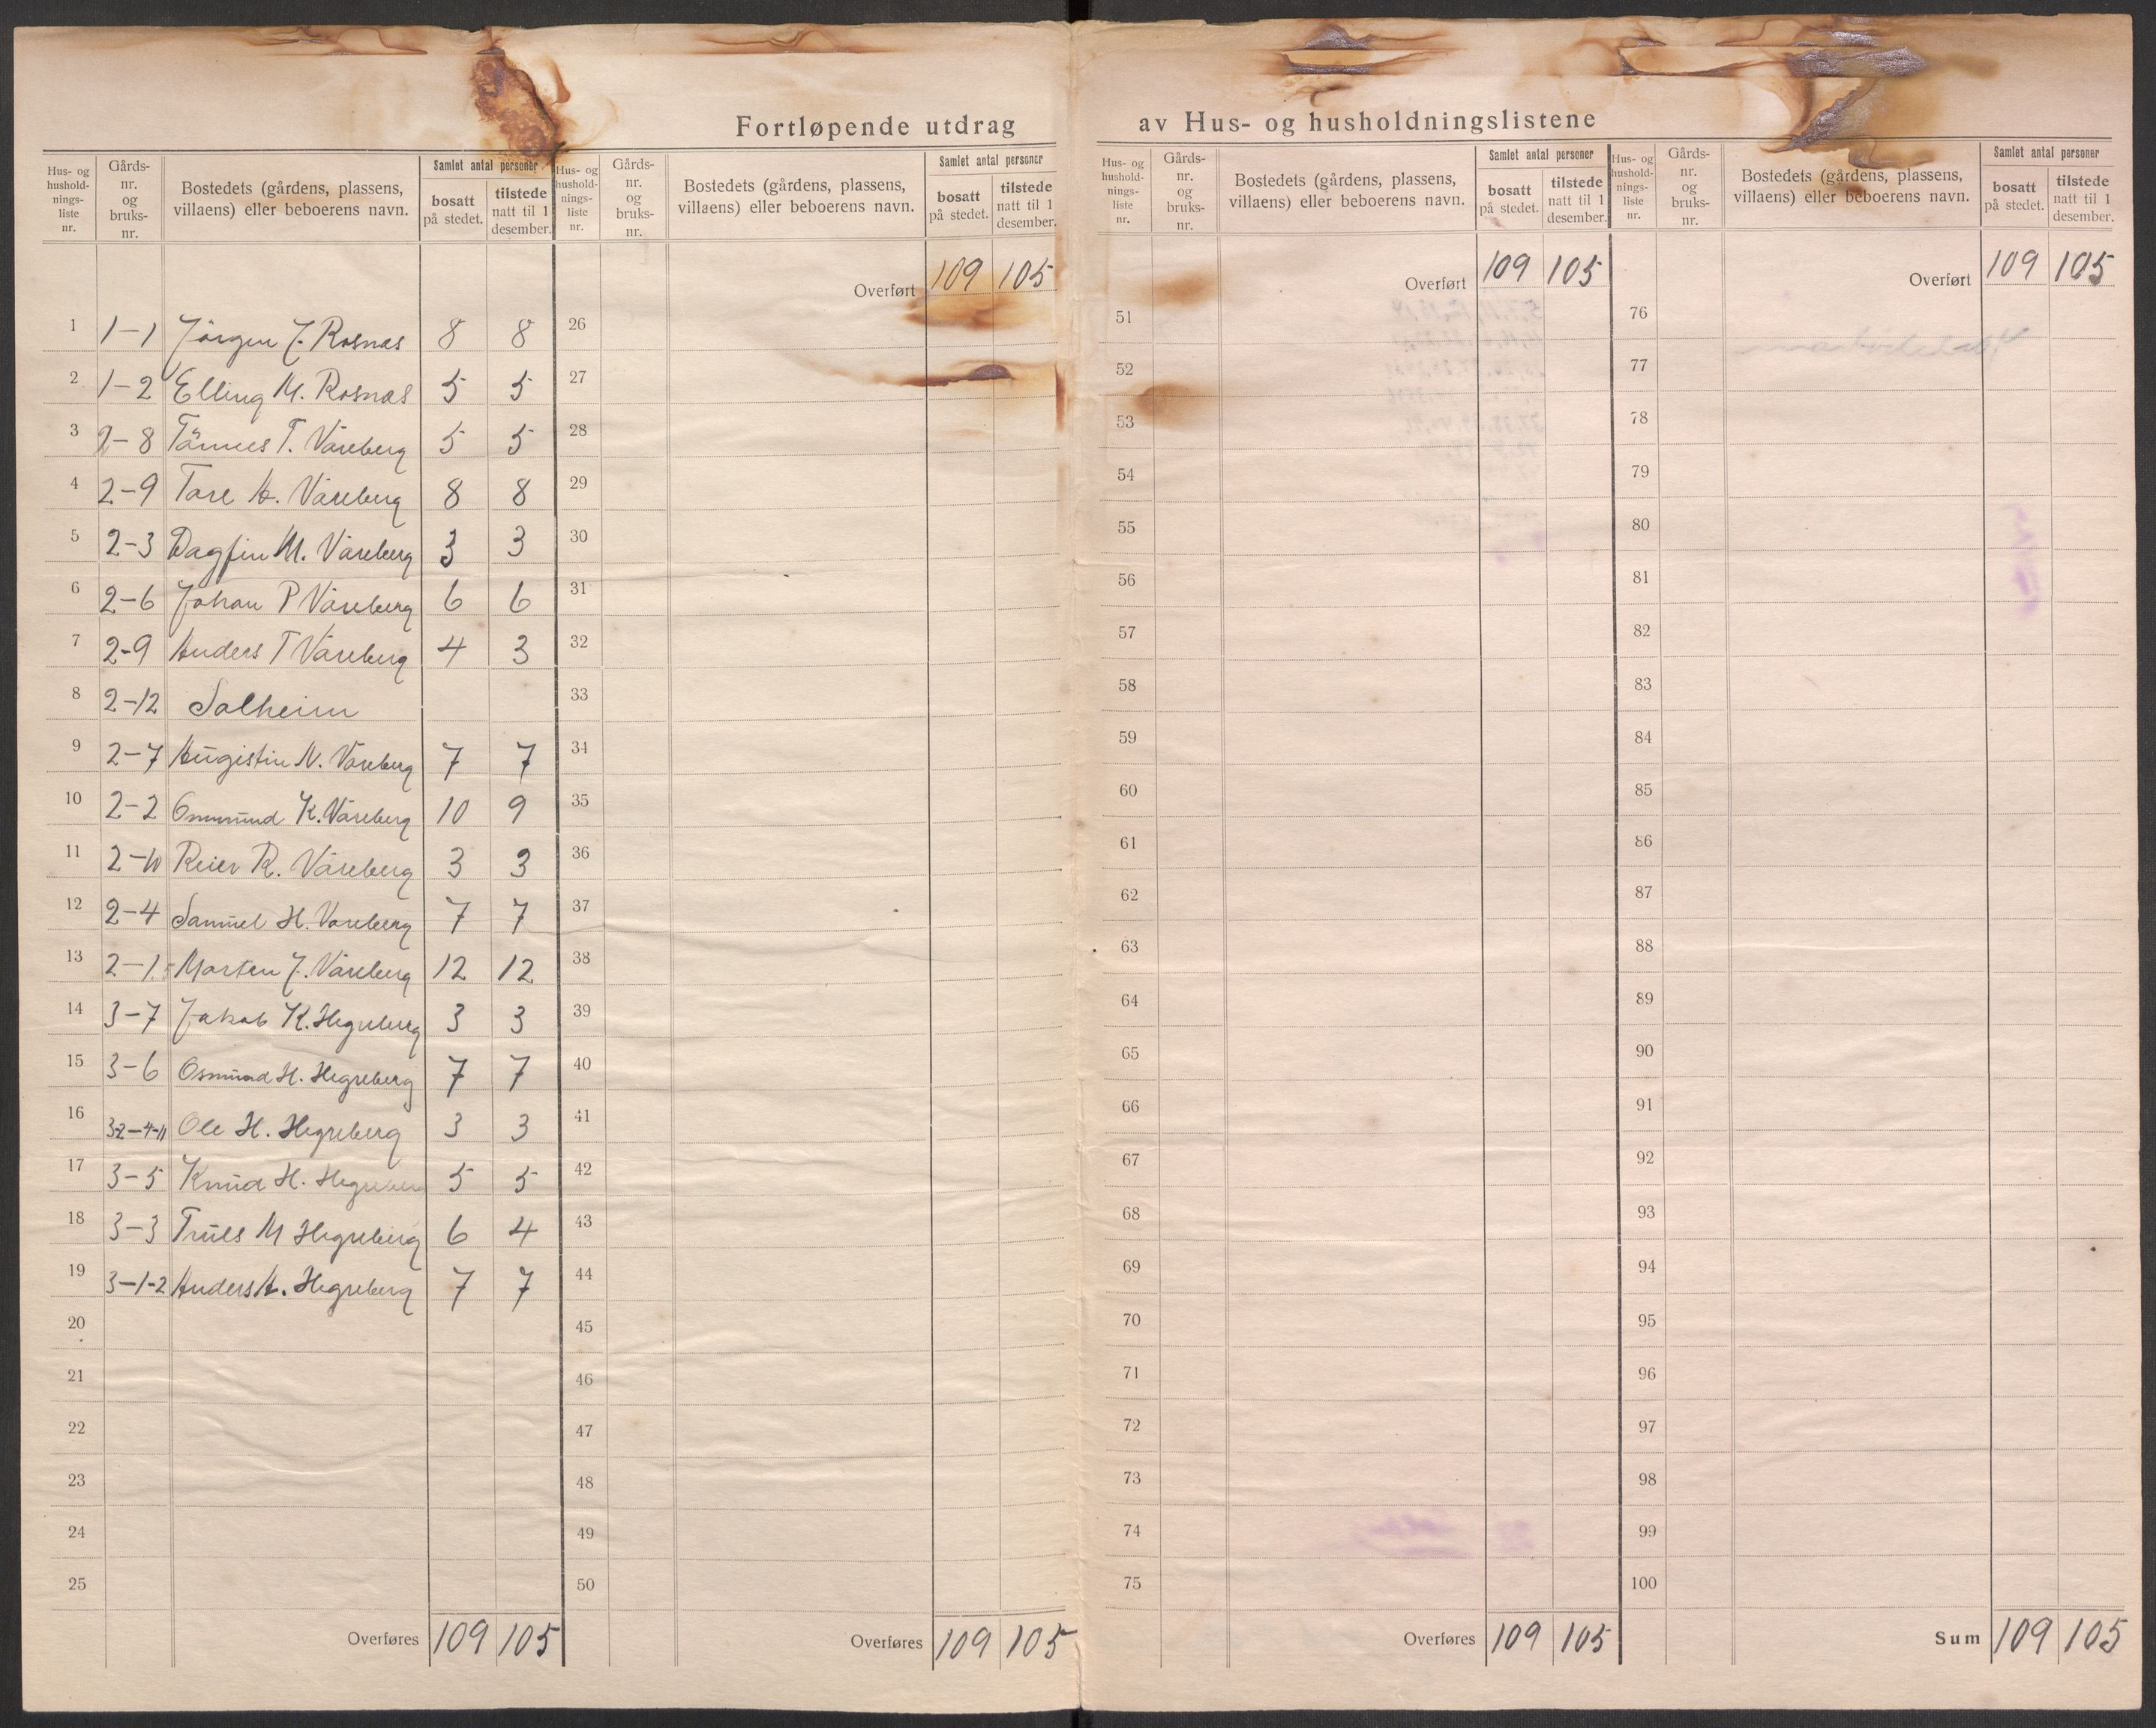 Fortløpende utdrag av Hus- og husholdningslistene
Hus- og hushold-nings-liste nr. Gårds-nr. og bruks-nr. Bostedets (gårdens, plassens, villaens) eller beboerens navn. Samlet antal personer bosatt på stedet. tilstede natt til 1 desember.
1 1-1 Jörgen J. Rosnæs 8 8
2 1-2 Elling M. Rosnæs 5 5
3 2-8 Tönnes T. Våreberg 5 5
4 2-9 Tore A. Våreberg 8 8
5 2-3 Dagfin M. Våreberg 3 3
6 2-6 Johan P Våreberg 6 6
7 2-9 Anders T Våreberg 4 3
8 2-12 Solheim
9 2-7 Augistin N. Våreberg 7 7
10 2-2 Osmund K. Våreberg 10 9
11 2-10 Reier R. Våreberg 3 3
12 2-4 Samuel H. Vareberg 7 7
13 2-1 Morten J. Våreberg 12 12
14 3-7 Jakob K. Hegreberg 3 3
15 3-6 Osmund H. Hegreberg 7 7
16 3-2-4-11 Ole H. Hegreberg 3 3
17 3-5 Knud H. Hegreberg 5 5
18 3-3 Truls M Hegreberg 6 4
19 3-1-2 Anders A. Hegreberg 7 7
20
21
22
23
24
25
Overføres 109 105
Hus- og hushold-nings-liste nr. Gårds-nr. og bruks-nr. Bostedets (gårdens, plassens, villaens) eller beboerens navn. Samlet antal personer bosatt på stedet. tilstede natt til 1 desember.
Overført 109 105
26
27
28
29
30
31
32
33
34
35
36
37
38
39
40
41
42
43
44
45
46
47
48
49
50
Overføres 109 105
Hus- og hushold-nings-liste nr. Gårds-nr. og bruks-nr. Bostedets (gårdens, plassens, villaens) eller beboerens navn. Samlet antal personer bosatt på stedet. tilstede natt til 1 desember.
Overført 109 105
51
52
53
54
55
56
57
58
59
60
61
62
63
64
65
66
67
68
69
70
71
72
73
74
75
Overføres 109 105
Hus- og hushold-nings-liste nr. Gårds-nr. og bruks-nr. Bostedets (gårdens, plassens, villaens) eller beboerens navn. Samlet antal personer bosatt på stedet. tilstede natt til 1 desember.
Overført 109 105
76
77
78
79
80
81
82
83
84
85
86
87
88
89
90
91
92
93
94
95
96
97
98
99
100
Sum 109 105